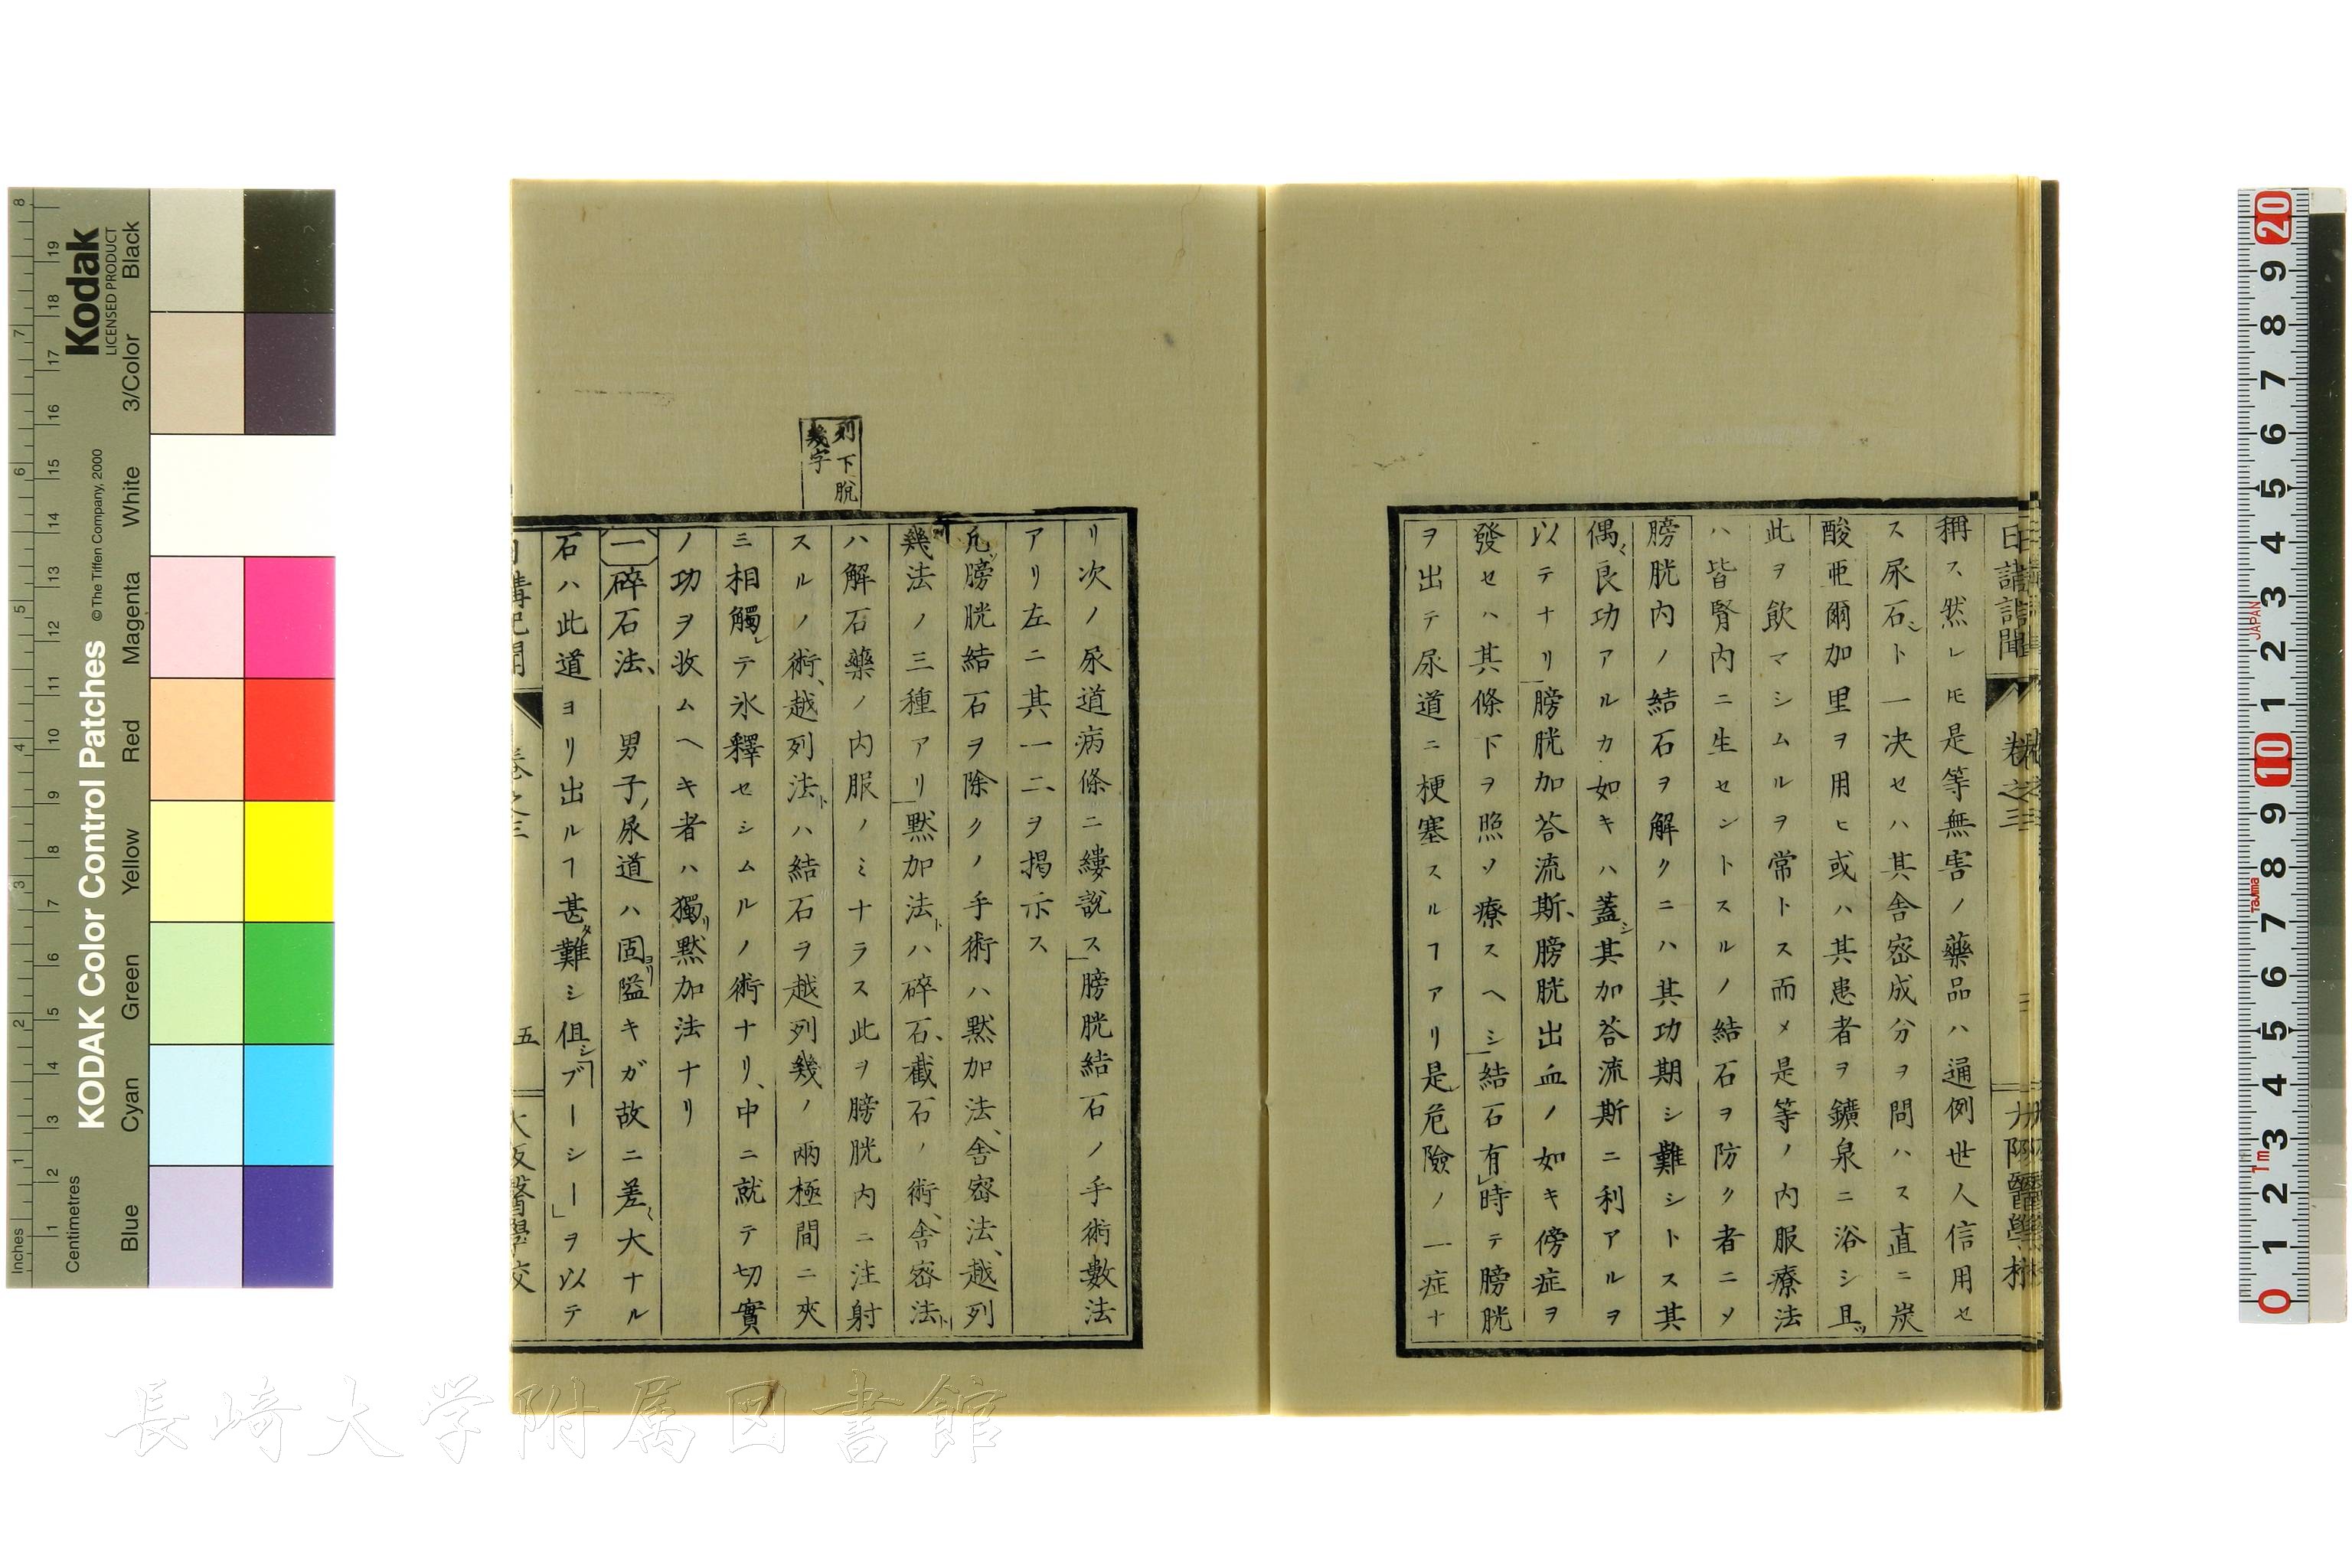 稱ス然レ𪜈是等無害ノ藥品ハ通例世人信用セ
ス尿石ト一决セハ其舎密成分ヲ問ハス直ニ炭
酸亜爾加里ヲ用ヒ或ハ其患者ヲ鑛泉ニ浴シ且ツ
此ヲ飲マシムルヲ常トス而メ是等ノ内服療法
ハ皆腎内ニ生セントスルノ結石ヲ防ク者ニメ
膀胱内ノ結石ヲ解クニハ其功期シ難シトス其
偶〻良功アルカ如キハ蓋シ其加荅流斯ニ利アルヲ
以テナリ膀胱加荅流斯、膀胱出血ノ如キ傍症ヲ
發セハ其條下ヲ照ソ療スヘシ結石有時テ膀胱
ヲ出テ尿道ニ梗塞スルヿアリ是レ危險ノ一症ナ
リ次ノ尿道病條ニ縷説ス膀胱結石ノ手術數法
アリ左ニ其一二、ヲ掲示ス
凡ソ膀胱結石ヲ除クノ手術ハ黙加法、舎密法、越列
幾法ノ三種アリ黙加法トハ碎石、截石ノ術、舎密法ト
ハ解石藥ノ内服ノミナラス此ヲ膀胱内ニ注射
スルノ術、越列法トハ結石ヲ越列幾ノ兩極間ニ夾
三相觸レテ氷釋セシムルノ術ナリ、中ニ就テ切實
ノ功ヲ收ムヘキ者ハ獨リ黙加法ナリ
列下脱
幾字
一碎石法、 男子ノ尿道ハ固ヨリ隘キガ故ニ差〻大ナル
石ハ此道ヨリ出ルヿ甚タ難シ但シ「ブーシー」ヲ以テ
日講記聞 卷之三 五 大阪醫學校
日講記聞 卷之三 大阪醫學校
長崎大学附属図書館
KODAK Color Control Patches
©The Tiffen Company, 2000
Kodak
LICENSED PRODUCT
Inches
Centimetres
Blue Cyan Green Yellow Red Magenta White 3/Color Black
JAPAN
Tajima
1m